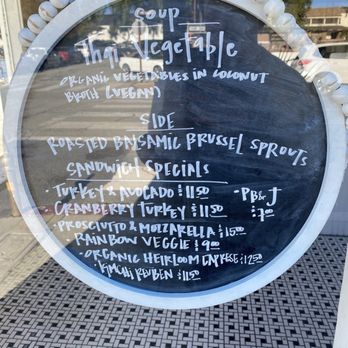 SOUP
Thai Vegetable
ORGANIC VEGETABLES IN COCONUT
BROTH (VEGAN)
SIDE
ROASTED BALSAMIC BRUSSEL SPROUTS
SANDWICH SPECIALS
• TURKEY & AVOCADO $11.50
• CRANBERRY TURKEY $11.50
• PROSCIUTTO & MOZZARELLA $15.00
• RAINBOW VEGGIE $9.00
• ORGANIC HEIRLOOM CAPRESE $12.50
• KIMCHI REUBEN $11.50
• PB & J
$7.00